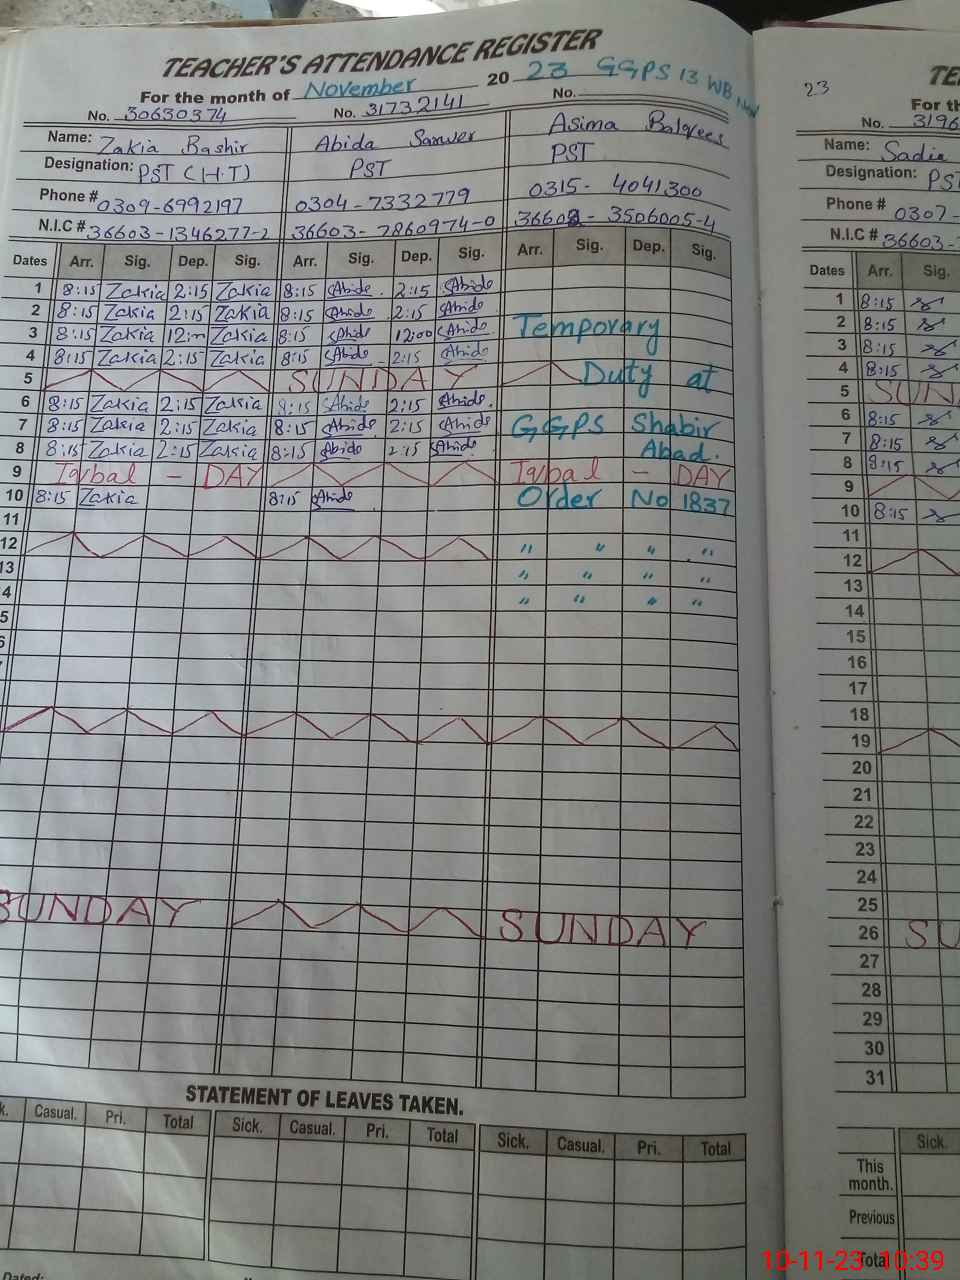 TEACHER'S ATTENDANCE REGISTER
For the month of November 20 23 GGPS 13 WB
No. 30630374 No. 31732141 No.
Name: Zakia Bashir Abida Sarwer Asima Balqees
Designation: PST (H.T) PST PST
Phone # 0309-6992197 0304-7332779 0315-4041300
N.I.C # 36603-1346277-2 36603-7860974-0 36603-3506005-4
Dates Arr. Sig. Dep. Sig. Arr. Sig. Dep. Sig. Arr. Sig. Dep. Sig.
1 8:15 Zakia 2:15 Zakia 8:15 Abida 2:15 Abida
2 8:15 Zakia 2:15 Zakia 8:15 Abida 2:15 Abida
3 8:15 Zakia 12:00 Zakia 8:15 Abida 12:00 Abida Temporary
4 8:15 Zakia 2:15 Zakia 8:15 Abida 2:15 Abida
5 SUNDAY Duty at
6 8:15 Zakia 2:15 Zakia 8:15 Abida 2:15 Abida
7 8:15 Zakia 2:15 Zakia 8:15 Abida 2:15 Abida GGPS Shabir
8 8:15 Zakia 2:15 Zakia 8:15 Abida 2:15 Abida Abad.
9 Iqbal - DAY Iqbal - DAY
10 8:15 Zakia 8:15 Abida Order No 1837
11
12 " " " "
13 " " " "
4 " " " "
5
6
SUNDAY SUNDAY
STATEMENT OF LEAVES TAKEN.
k. Casual. Pri. Total Sick. Casual. Pri. Total Sick. Casual. Pri. Total
Dated:
23
TE
For th
No. 3196
Name: Sadia
Designation: PST
Phone # 0307-
N.I.C # 36603-
Dates Arr. Sig.
1 8:15
2 8:15
3 8:15
4 8:15
5 SUN
6 8:15
7 8:15
8 8:15
9
10 8:15
11
12
13
14
15
16
17
18
19
20
21
22
23
24
25
26 SU
27
28
29
30
31
Sick.
This
month.
Previous
Total
10-11-23 10:39